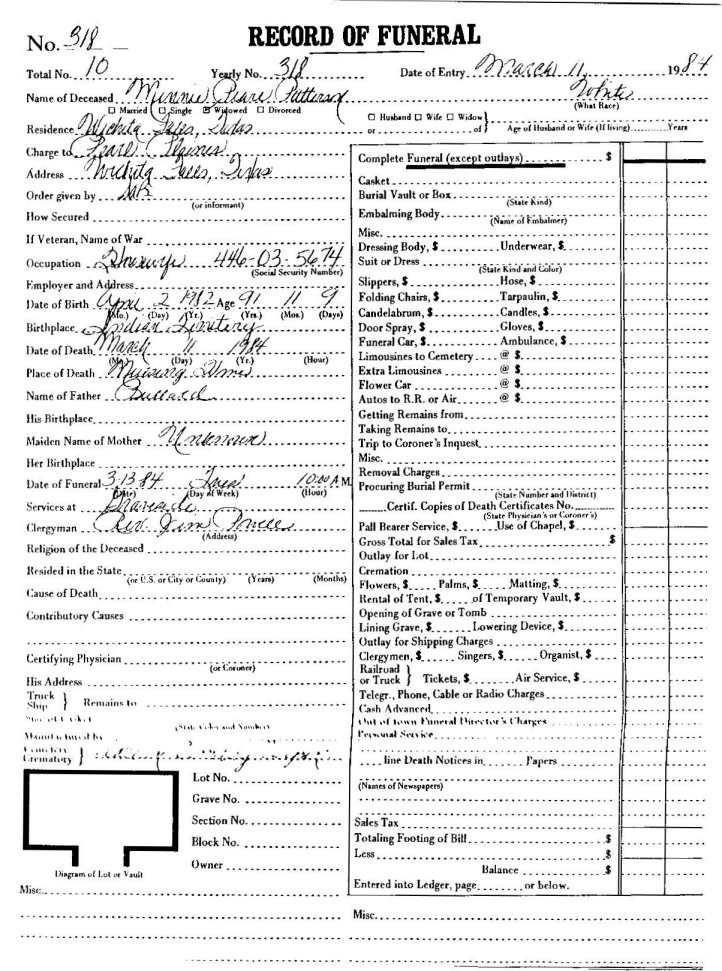 No. 318
RECORD OF FUNERAL
Total No. 10 Yearly No. 318 Date of Entry March 11, 1984
Name of Deceased Minnie Pearl Patterson White
☐ Married ☐ Single ☑ Widowed ☐ Divorced (What Race)
☐ Husband ☐ Wife ☐ Widow
or of Age of Husband or Wife (If living) Years
Residence Wichita Falls, Texas
Charge to Pearl
Address Wichita Falls, Texas
Order given by
(or informant)
How Secured
If Veteran, Name of War
Occupation Housewife 446-03-5674
(Social Security Number)
Employer and Address
Date of Birth April 2 1912 Age 91 11 9
(Mo.) (Day) (Yr.) (Yrs.) (Mos.) (Days)
Birthplace Indian Territory
Date of Death March 11 1984
(Mo.) (Day) (Yr.) (Hour)
Place of Death Nursing Home
Name of Father Bullard
His Birthplace
Maiden Name of Mother Unknown
Her Birthplace
Date of Funeral 3-13-84 Tues 10:00 A M
(Date) (Day of Week) (Hour)
Services at Graveside
Clergyman Rev. Jim
(Address)
Religion of the Deceased
Resided in the State
(or U.S. or City or County) (Years) (Months)
Cause of Death
Contributory Causes
Certifying Physician
(or Coroner)
His Address
Truck
Ship Remains to
(State Color and Number)
Manufactured by
Cemetery
Crematory
Lot No.
Grave No.
Section No.
Block No.
Owner
Diagram of Lot or Vault
Misc.
Complete Funeral (except outlays) $
Casket
Burial Vault or Box
(State Kind)
Embalming Body
(Name of Embalmer)
Misc.
Dressing Body, $ Underwear, $
Suit or Dress
(State Kind and Color)
Slippers, $ Hose, $
Folding Chairs, $ Tarpaulin, $
Candelabrum, $ Candles, $
Door Spray, $ Gloves, $
Funeral Car, $ Ambulance, $
Limousines to Cemetery @ $
Extra Limousines @ $
Flower Car @ $
Autos to R.R. or Air @ $
Getting Remains from
Taking Remains to
Trip to Coroner's Inquest
Misc.
Removal Charges
Procuring Burial Permit
(State Number and District)
Certif. Copies of Death Certificates No.
(State Physician's or Coroner's)
Pall Bearer Service, $ Use of Chapel, $
Gross Total for Sales Tax $
Outlay for Lot
Cremation
Flowers, $ Palms, $ Matting, $
Rental of Tent, $ of Temporary Vault, $
Opening of Grave or Tomb
Lining Grave, $ Lowering Device, $
Outlay for Shipping Charges
Clergymen, $ Singers, $ Organist, $
Railroad
or Truck Tickets, $ Air Service, $
Telegr., Phone, Cable or Radio Charges
Cash Advanced
Out of town Funeral Director's Charges
Personal Service
line Death Notices in Papers
(Names of Newspapers)
Sales Tax
Totaling Footing of Bill $
Less $
Balance $
Entered into Ledger, page or below.
Misc.